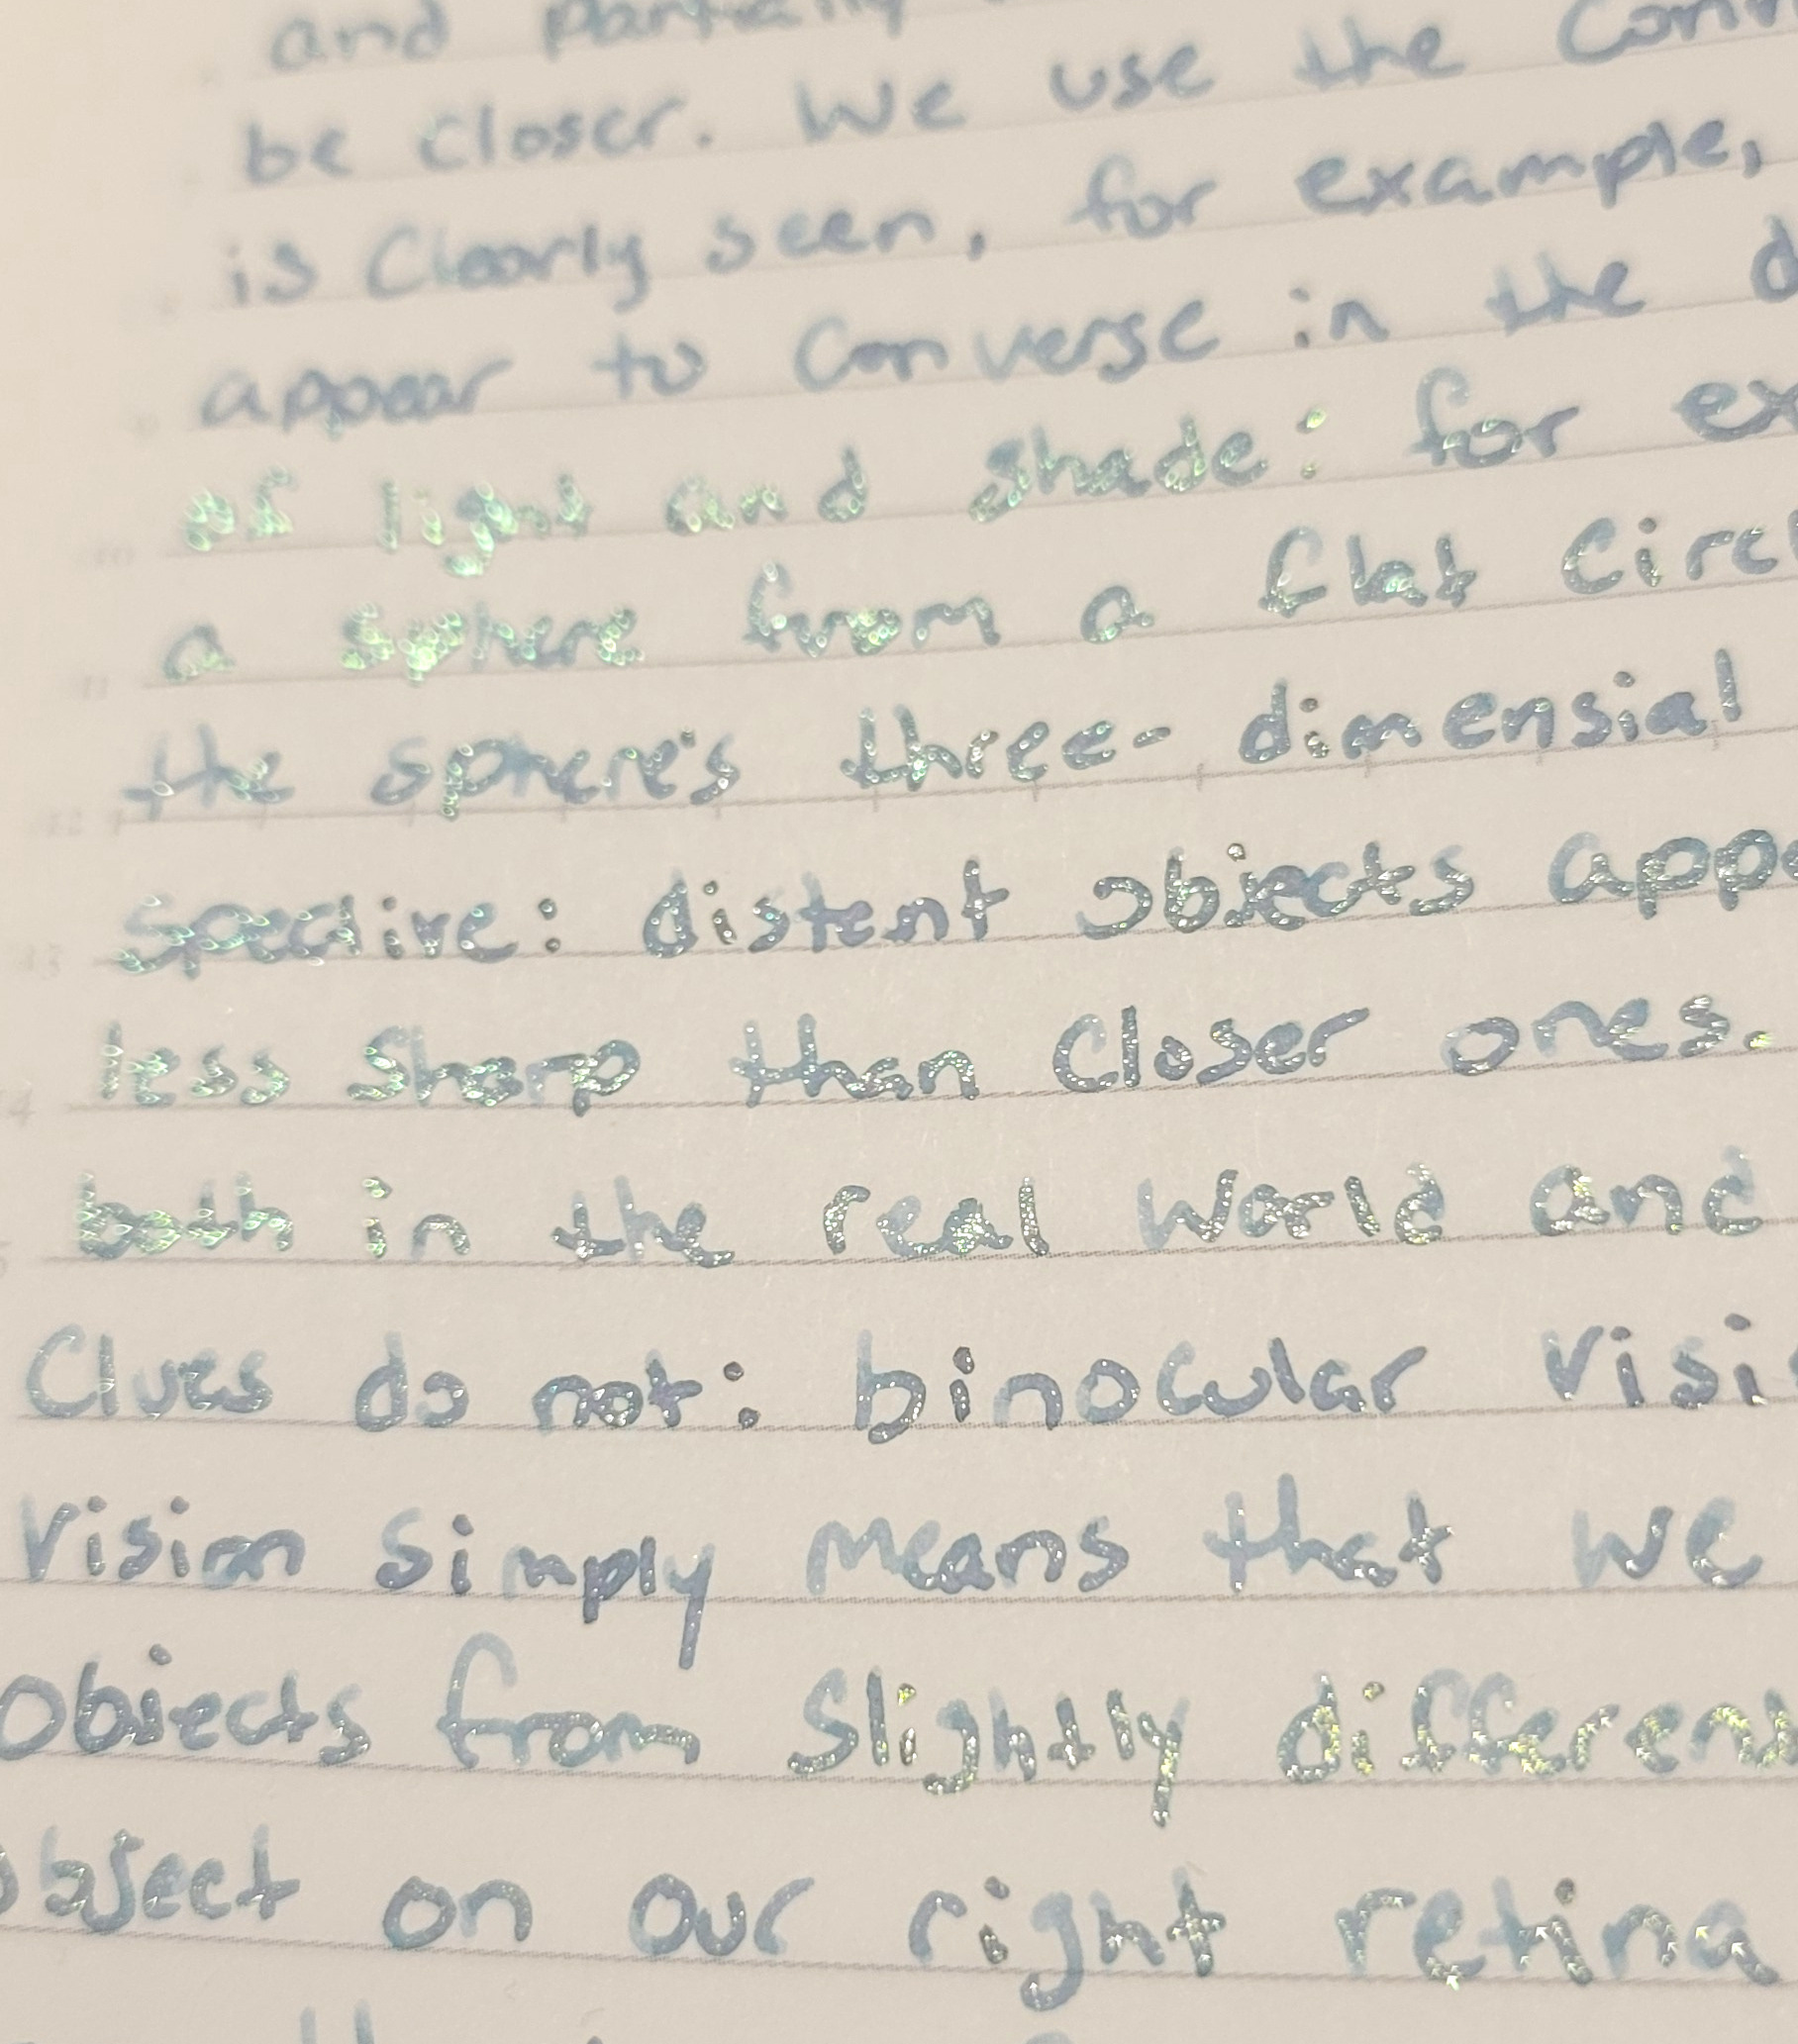 and partially
be closer. We use the
is Clearly seen, for example,
appear to Converse in the
of light and shade: for
a sphere from a flat
the sphere's three-dimensial
spective: distent objects
less sharp than Closer ones.
both in the real world and
Clues do not: binocular
Vision simply means that we
Objects from slightly different
object on our right retina